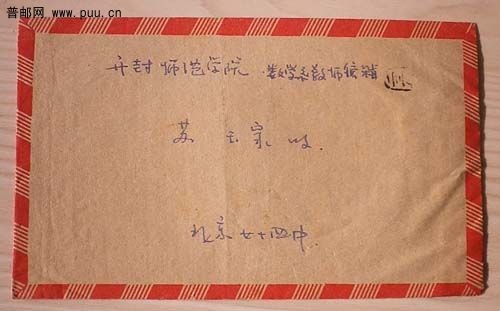 普邮网 www.puu.cn
开封师范学院 数学系教师
苏 玉 宗 收
北京七十四中